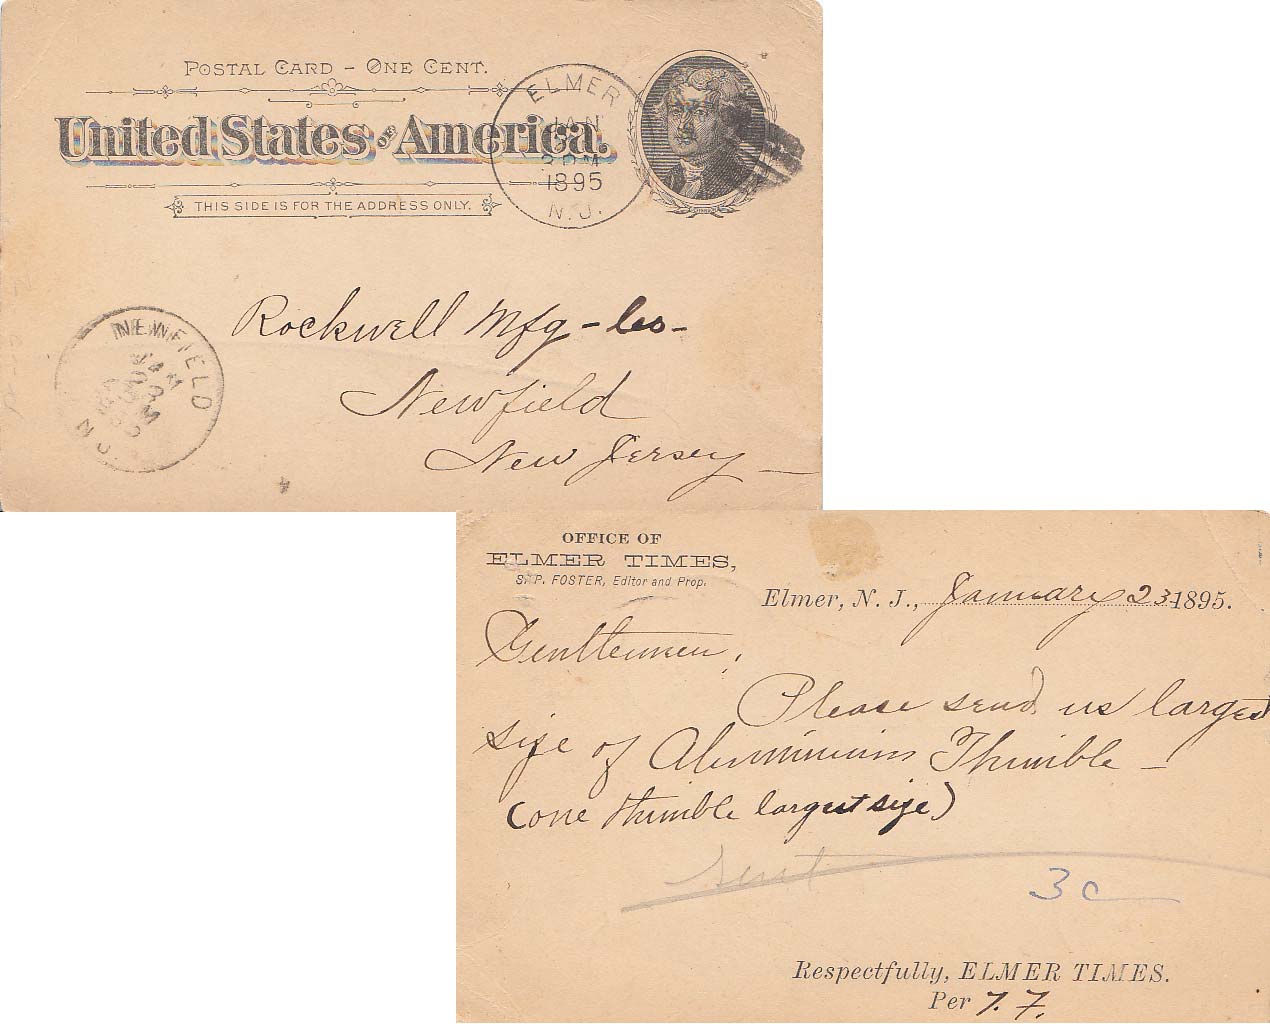 POSTAL CARD – ONE CENT.
United States OF America.
THIS SIDE IS FOR THE ADDRESS ONLY.
ELMER
JAN
1895
N.J.
Rockwell Mfg - Co -
Newfield
New Jersey
NEWFIELD
N.J.
4
OFFICE OF
ELMER TIMES,
S. P. FOSTER, Editor and Prop.
Elmer, N. J., January 23 1895.
Gentlemen,
Please send us largest
size of Aluminium Thimble -
(one thimble largest size)
Sent
3c
Respectfully, ELMER TIMES.
Per